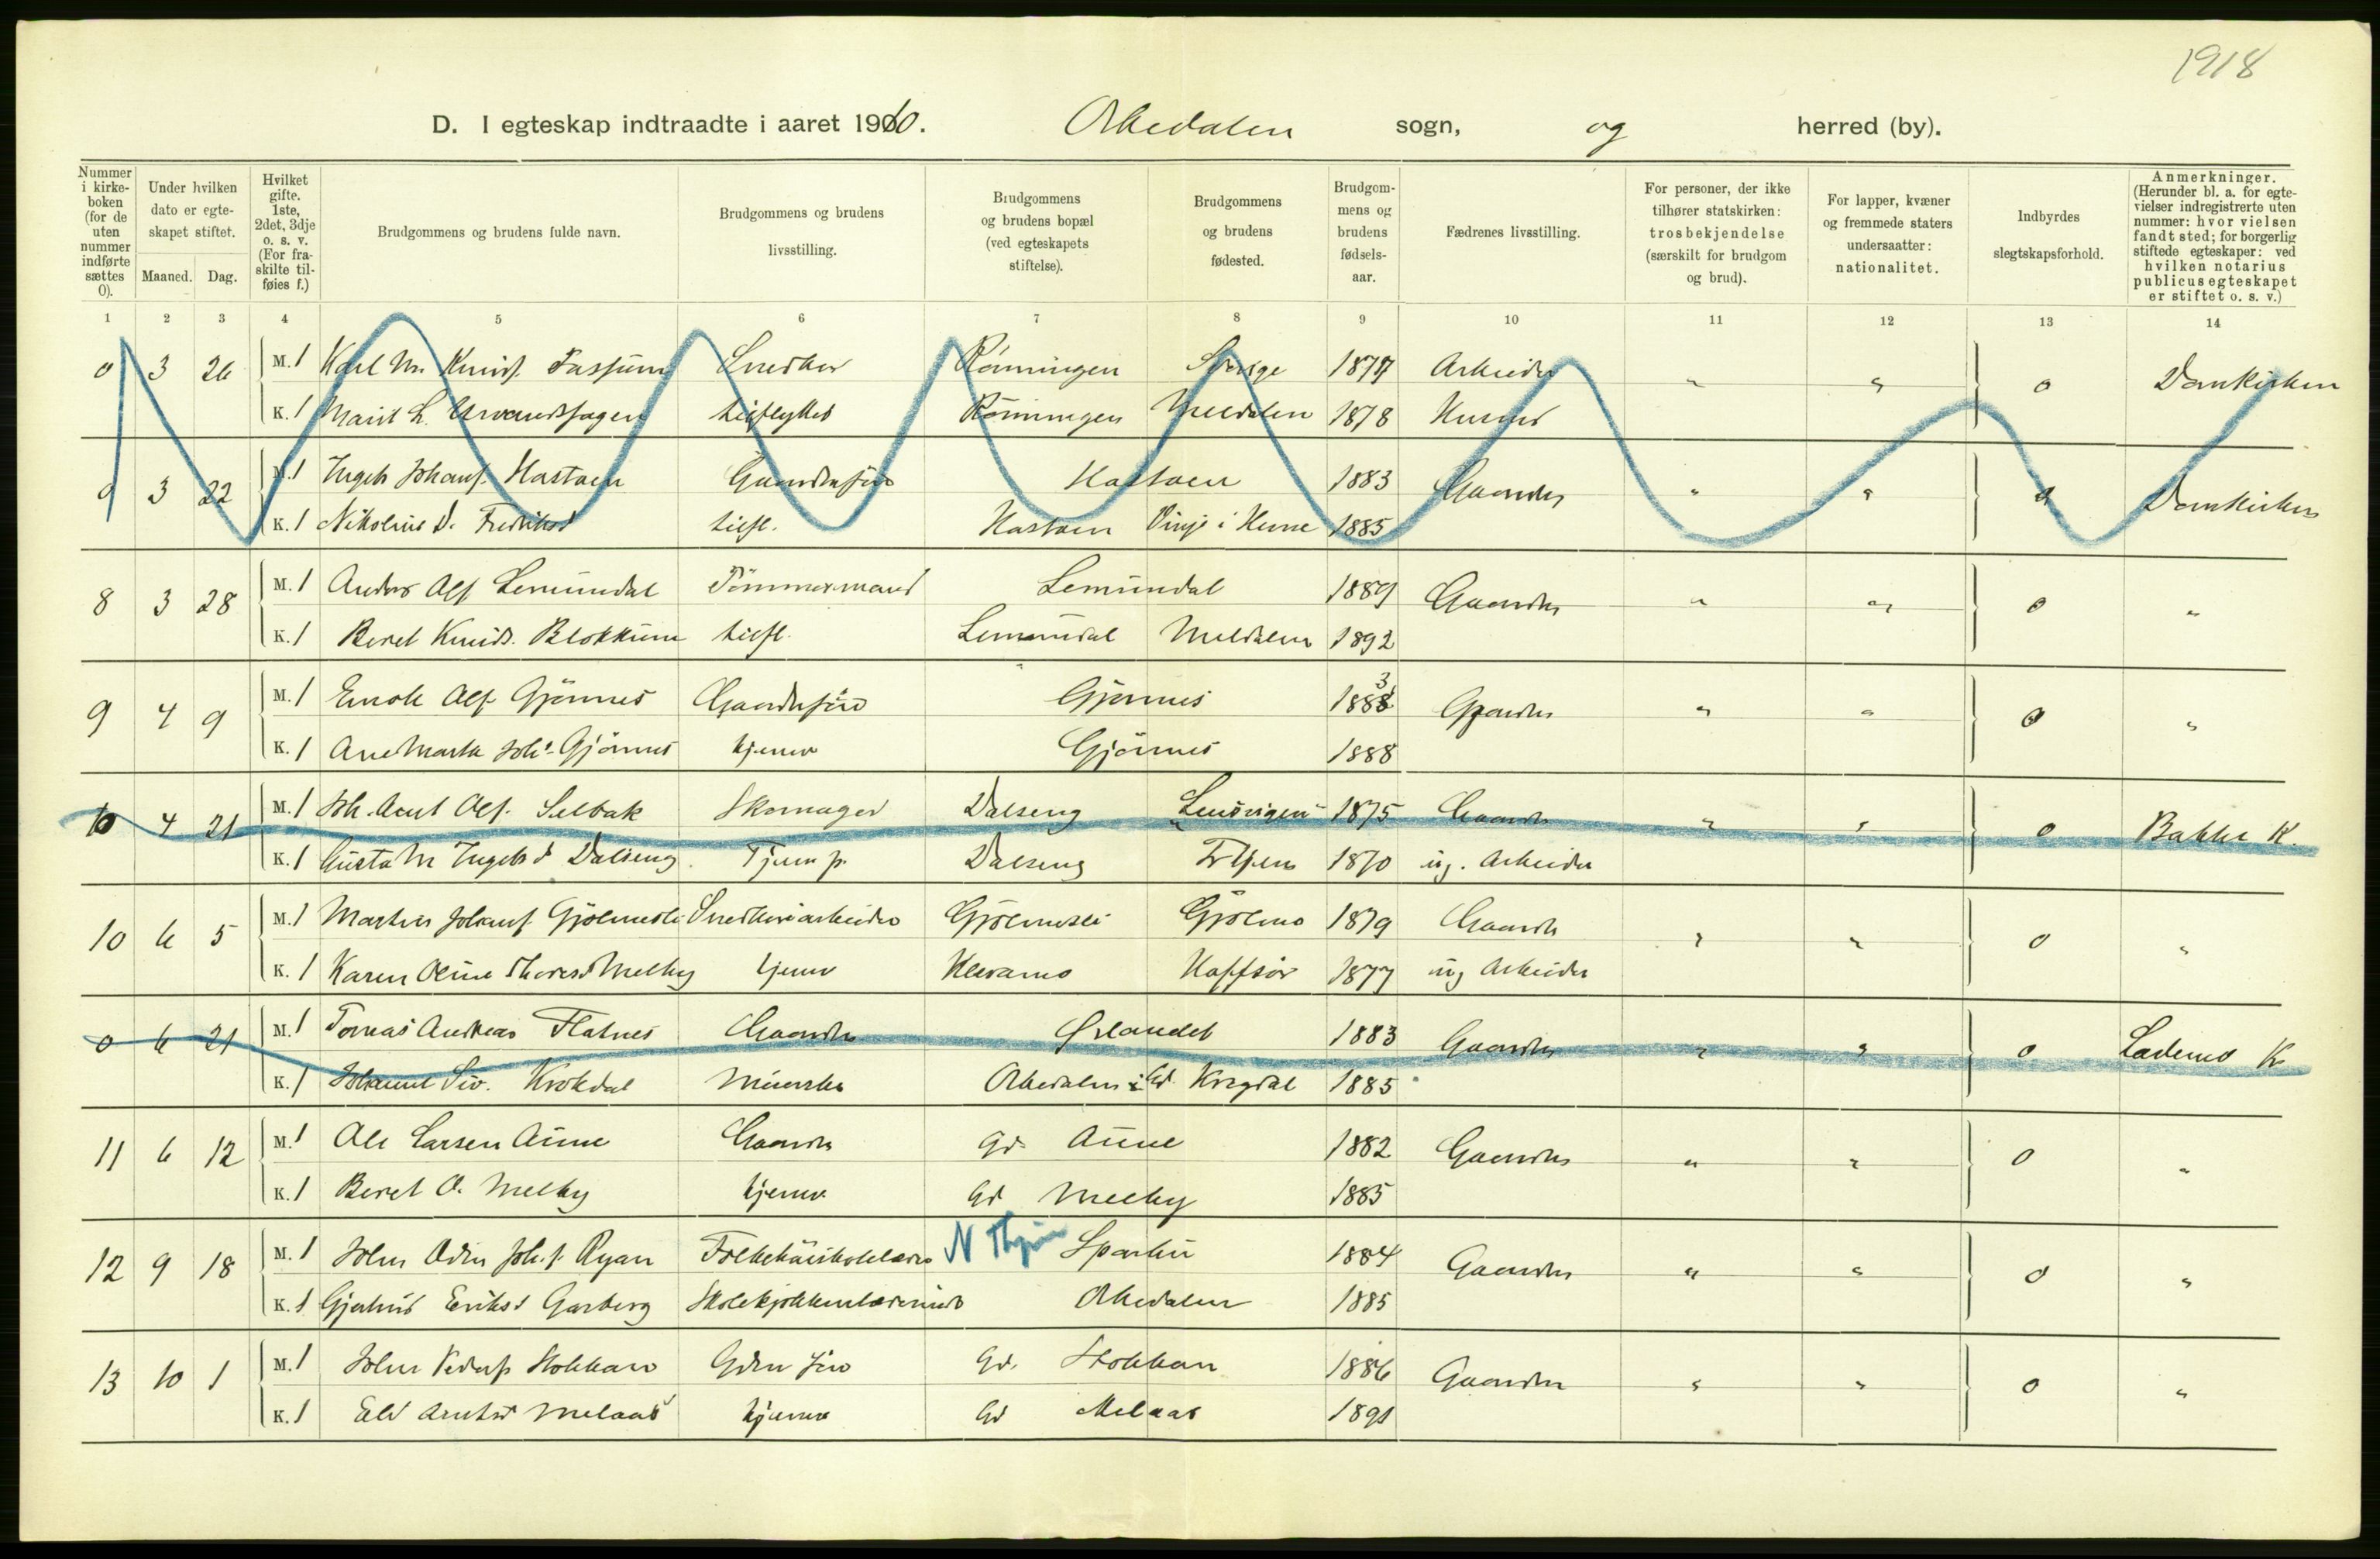 1918
D. I egteskap indtraadte i aaret 1910. Orkedalen sogn, og herred (by).
Nummer i kirkeboken (for de uten nummer indførte sættes 0).
Under hvilken dato er egteskapet stiftet.
Maaned. Dag.
Hvilket gifte. 1ste, 2det, 3dje o. s. v. (For fraskilte tilføies f.)
Brudgommens og brudens fulde navn.
Brudgommens og brudens livsstilling.
Brudgommens og brudens bopæl (ved egteskapets stiftelse).
Brudgommens og brudens fødested.
Brudgommens og brudens fødselsaar.
Fædrenes livsstilling.
For personer, der ikke tilhører statskirken: trosbekjendelse (særskilt for brudgom og brud).
For lapper, kvæner og fremmede staters undersaatter: nationalitet.
Indbyrdes slegtskapsforhold.
Anmerkninger. (Herunder bl. a. for egtevielser indregistrerte uten nummer: hvor vielsen fandt sted; for borgerlig stiftede egteskaper: ved hvilken notarius publicus egteskapet er stiftet o. s. v.)
1 2 3 4 5 6 7 8 9 10 11 12 13 14
0 3 26 M. 1 Karl M. Snedker Rønningen Sverige 1877 Arbeider " " 0 Domkirken
K. 1 Marit L. Rønningen Meldalen 1878 Husmd
0 3 22 M. 1 Ingeb. Johans. Hastoen Gaardmsøn Hastoen 1883 Gaardm " " 0 Domkirken
K. 1 Nikoline D. Fredriksd Hastoen Vinje i Hevne 1885
8 3 28 M. 1 Anders Ols. Lemundal Tømmermand Lemundal 1889 Gaardm " " 0 "
K. 1 Beret Knuds. Blokkum Lemundal Meldalen 1892
9 4 9 M. 1 Enok Ols. Gjønnes Gaardmsøn Gjønnes 1883 Gaardm " " 0 "
K. 1 Ane Marta Gjønnes hjemv Gjønnes 1888
10 4 21 M. 1 Joh. Arnt Ols. Selbak Skomager Dalseng Lensvigen 1875 Gaardm " " 0 Bakke K.
K. 1 Gusta M Ingebd Dalseng. Tjenp. Dalseng Trhjem 1870 ug. Arbeider
10 6 5 M. 1 Martin Johans. Gjølmesli Snedkeriarbeider Gjølmesli Gjølme 1879 Gaardm " " 0 "
K. 1 Karen Oline Melby hjemv 1877 ug Arbeider
0 6 21 M. 1 Tomas Andreas Flatnes Gaardm Ørlandet 1883 Gaardm " " 0 Lademo K
K. 1 Krokdal Orkedalen 1885
11 6 12 M. 1 Ole Larsen Aune Gaardm Gd. Aune 1882 Gaardm " " 0 "
K. 1 Beret O. Melby hjemv. Gd Melby 1885
12 9 18 M. 1 John Odin Joh.s. Ryan Folkehøiskolelærer N Thjem Sparbu 1884 Gaardm " " 0 "
K. 1 Gjertrud Eriksd Garberg Skolekjøkkenlærerinde Orkedalen 1885
13 10 1 M. 1 John Peders Stokkan Gdm søn Gd. Stokkan 1886 Gaardm " " 0 "
K. 1 Eli Arntsd Melaas hjemv Gd Melaas 1891